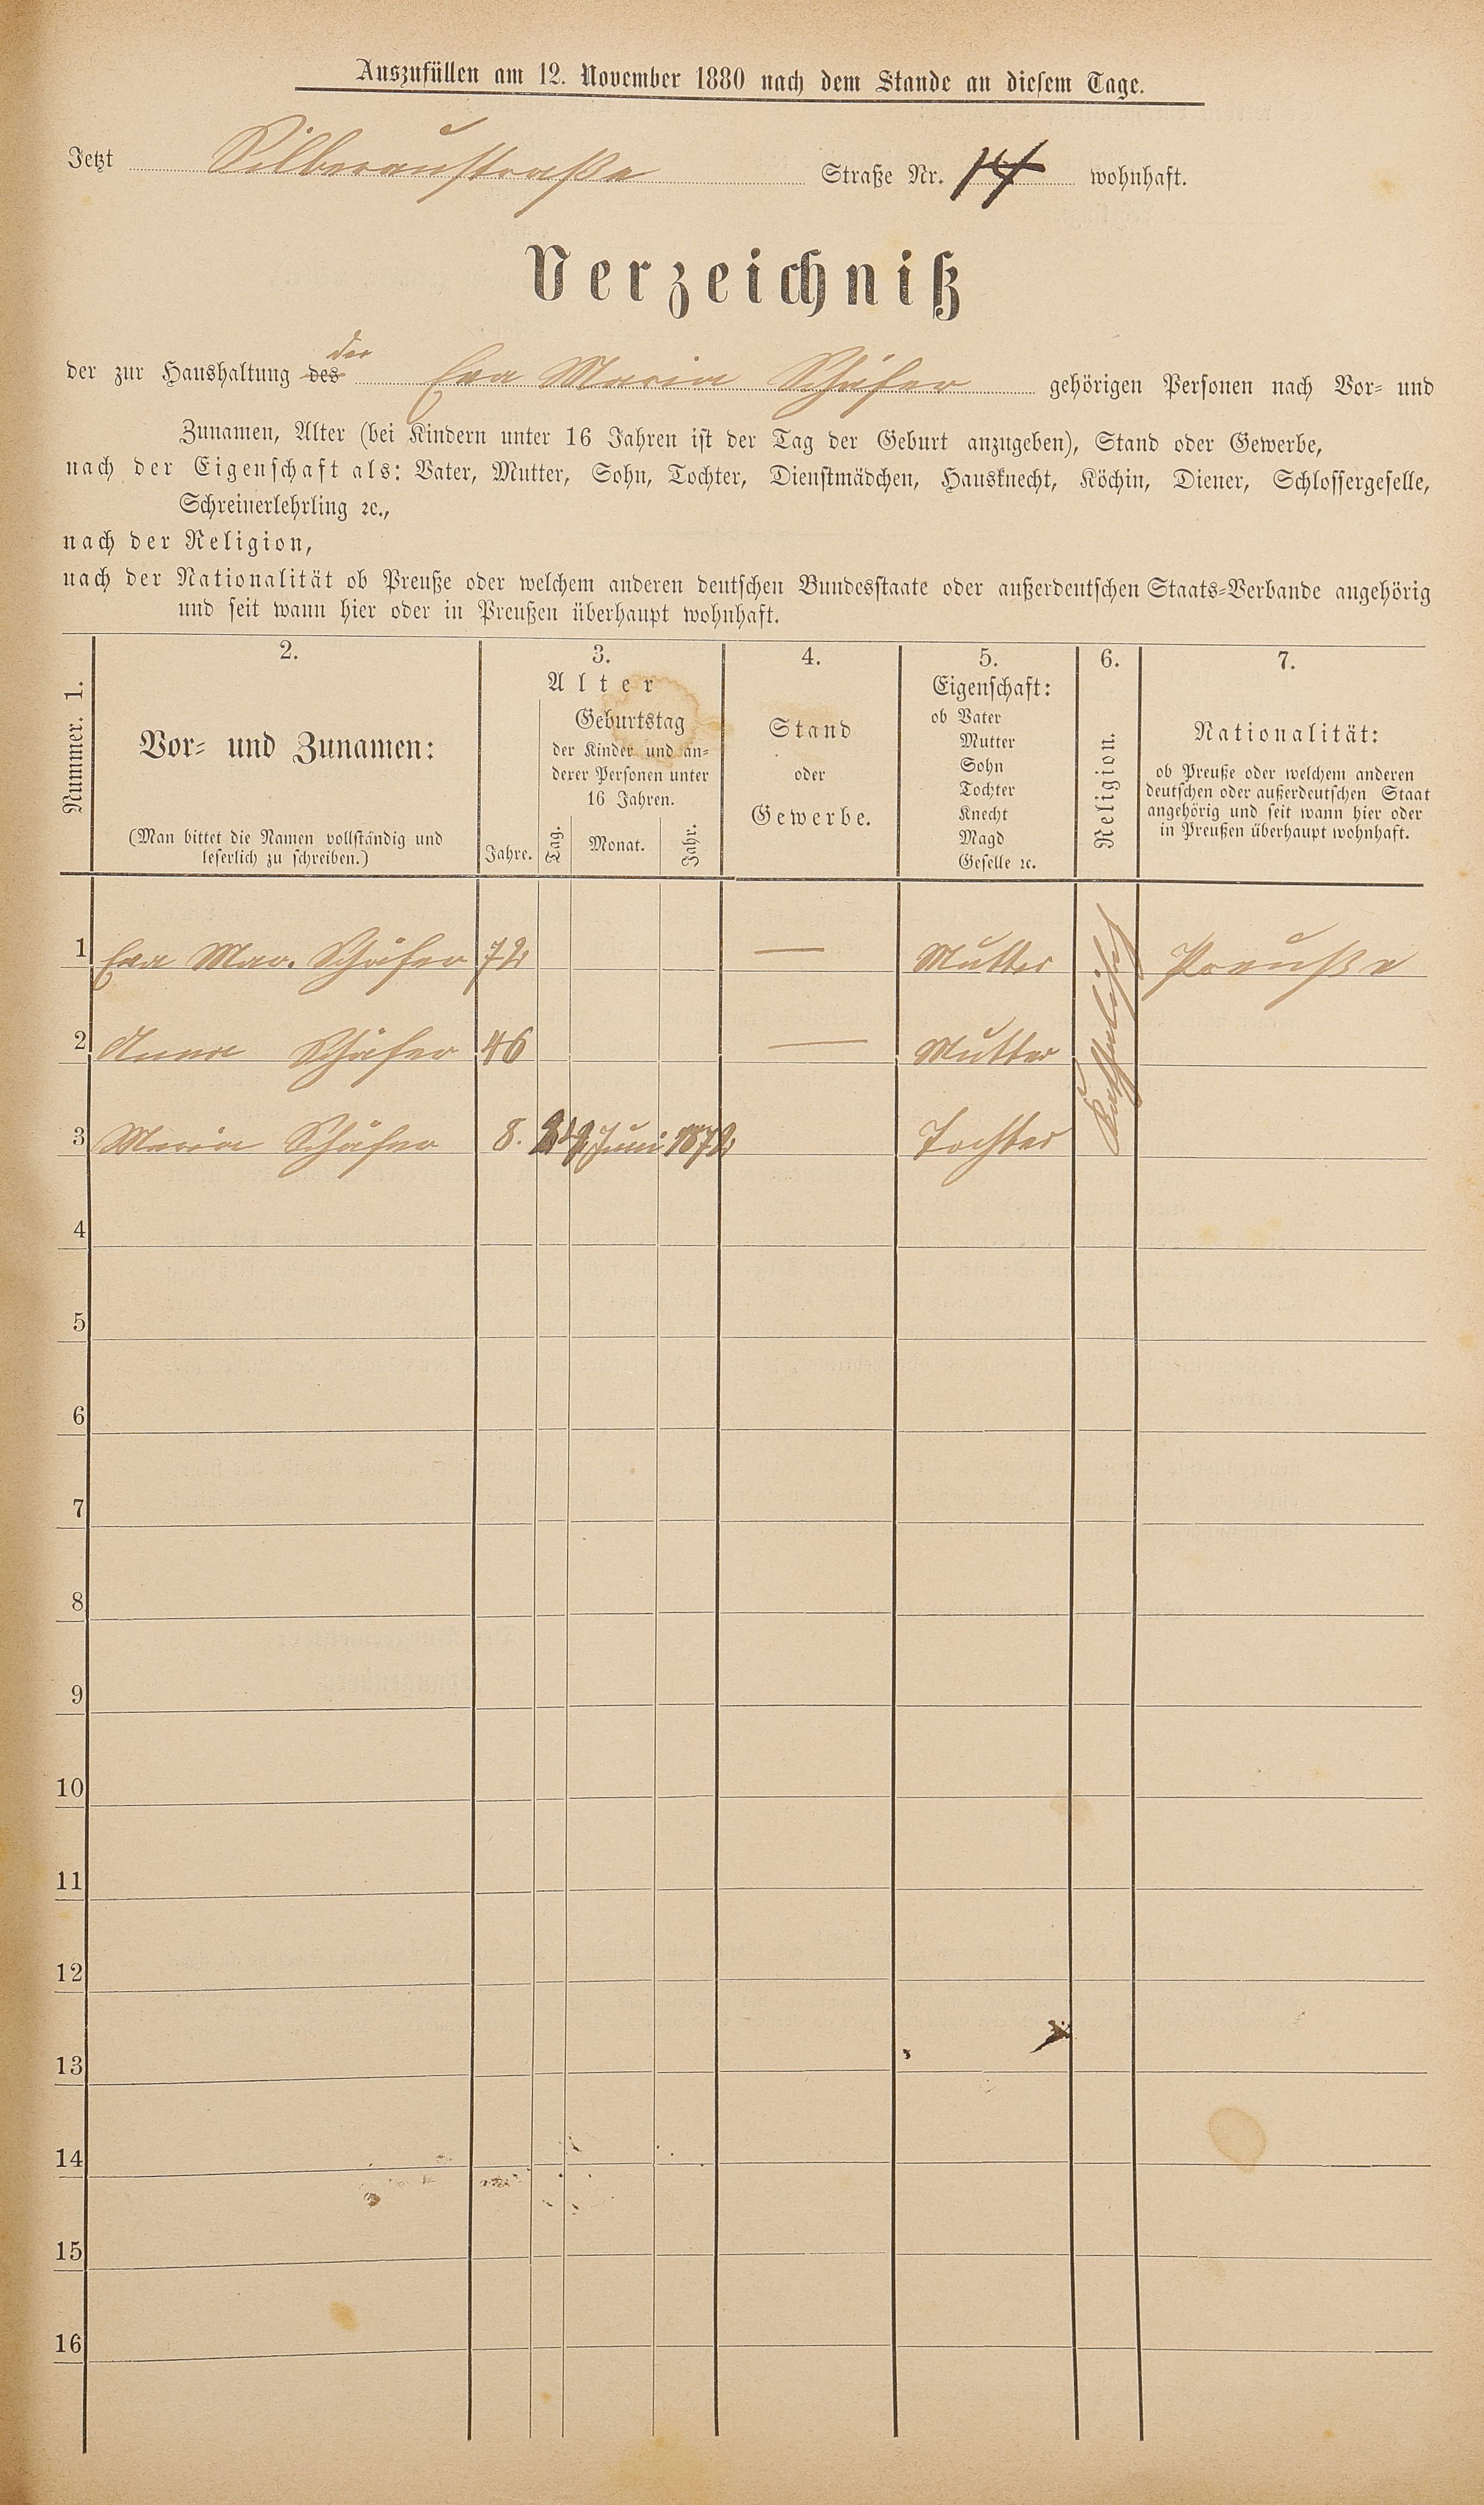 Auszufüllen am 12. November 1880 nach dem Stande an diesem Tage.
Jetzt Silberaustraße Straße Nr. 14 wohnhaft.
Verzeichniß
der
der zur Haushaltung des Eva Maria Schäfer gehörigen Personen nach Vor- und
Zunamen, Alter (bei Kindern unter 16 Jahren ist der Tag der Geburt anzugeben), Stand oder Gewerbe,
nach der Eigenschaft als: Vater, Mutter, Sohn, Tochter, Dienstmädchen, Hausknecht, Köchin, Diener, Schlossergeselle,
Schreinerlehrling ꝛc.,
nach der Religion,
nach der Nationalität ob Preuße oder welchem anderen deutschen Bundesstaate oder außerdeutschen Staats-Verbande angehörig
und seit wann hier oder in Preußen überhaupt wohnhaft.
Nummer. 1.
2.
Vor- und Zunamen:
(Man bittet die Namen vollständig und
leserlich zu schreiben.)
3.
Alter
Jahre.
Geburtstag
der Kinder und an-
derer Personen unter
16 Jahren.
Tag.
Monat.
Jahr.
4.
Stand
oder
Gewerbe.
5.
Eigenschaft:
ob Vater
Mutter
Sohn
Tochter
Knecht
Magd
Geselle ꝛc.
6.
Religion.
7.
Nationalität:
ob Preuße oder welchem anderen
deutschen oder außerdeutschen Staat
angehörig und seit wann hier oder
in Preußen überhaupt wohnhaft.
1 Eva Mar. Schäfer 72 — Mutter Katholisch Preuße
2 Anna Schäfer 46 — Mutter
3 Maria Schäfer 8. Juni 1872 Tochter
4
5
6
7
8
9
10
11
12
13
14
15
16